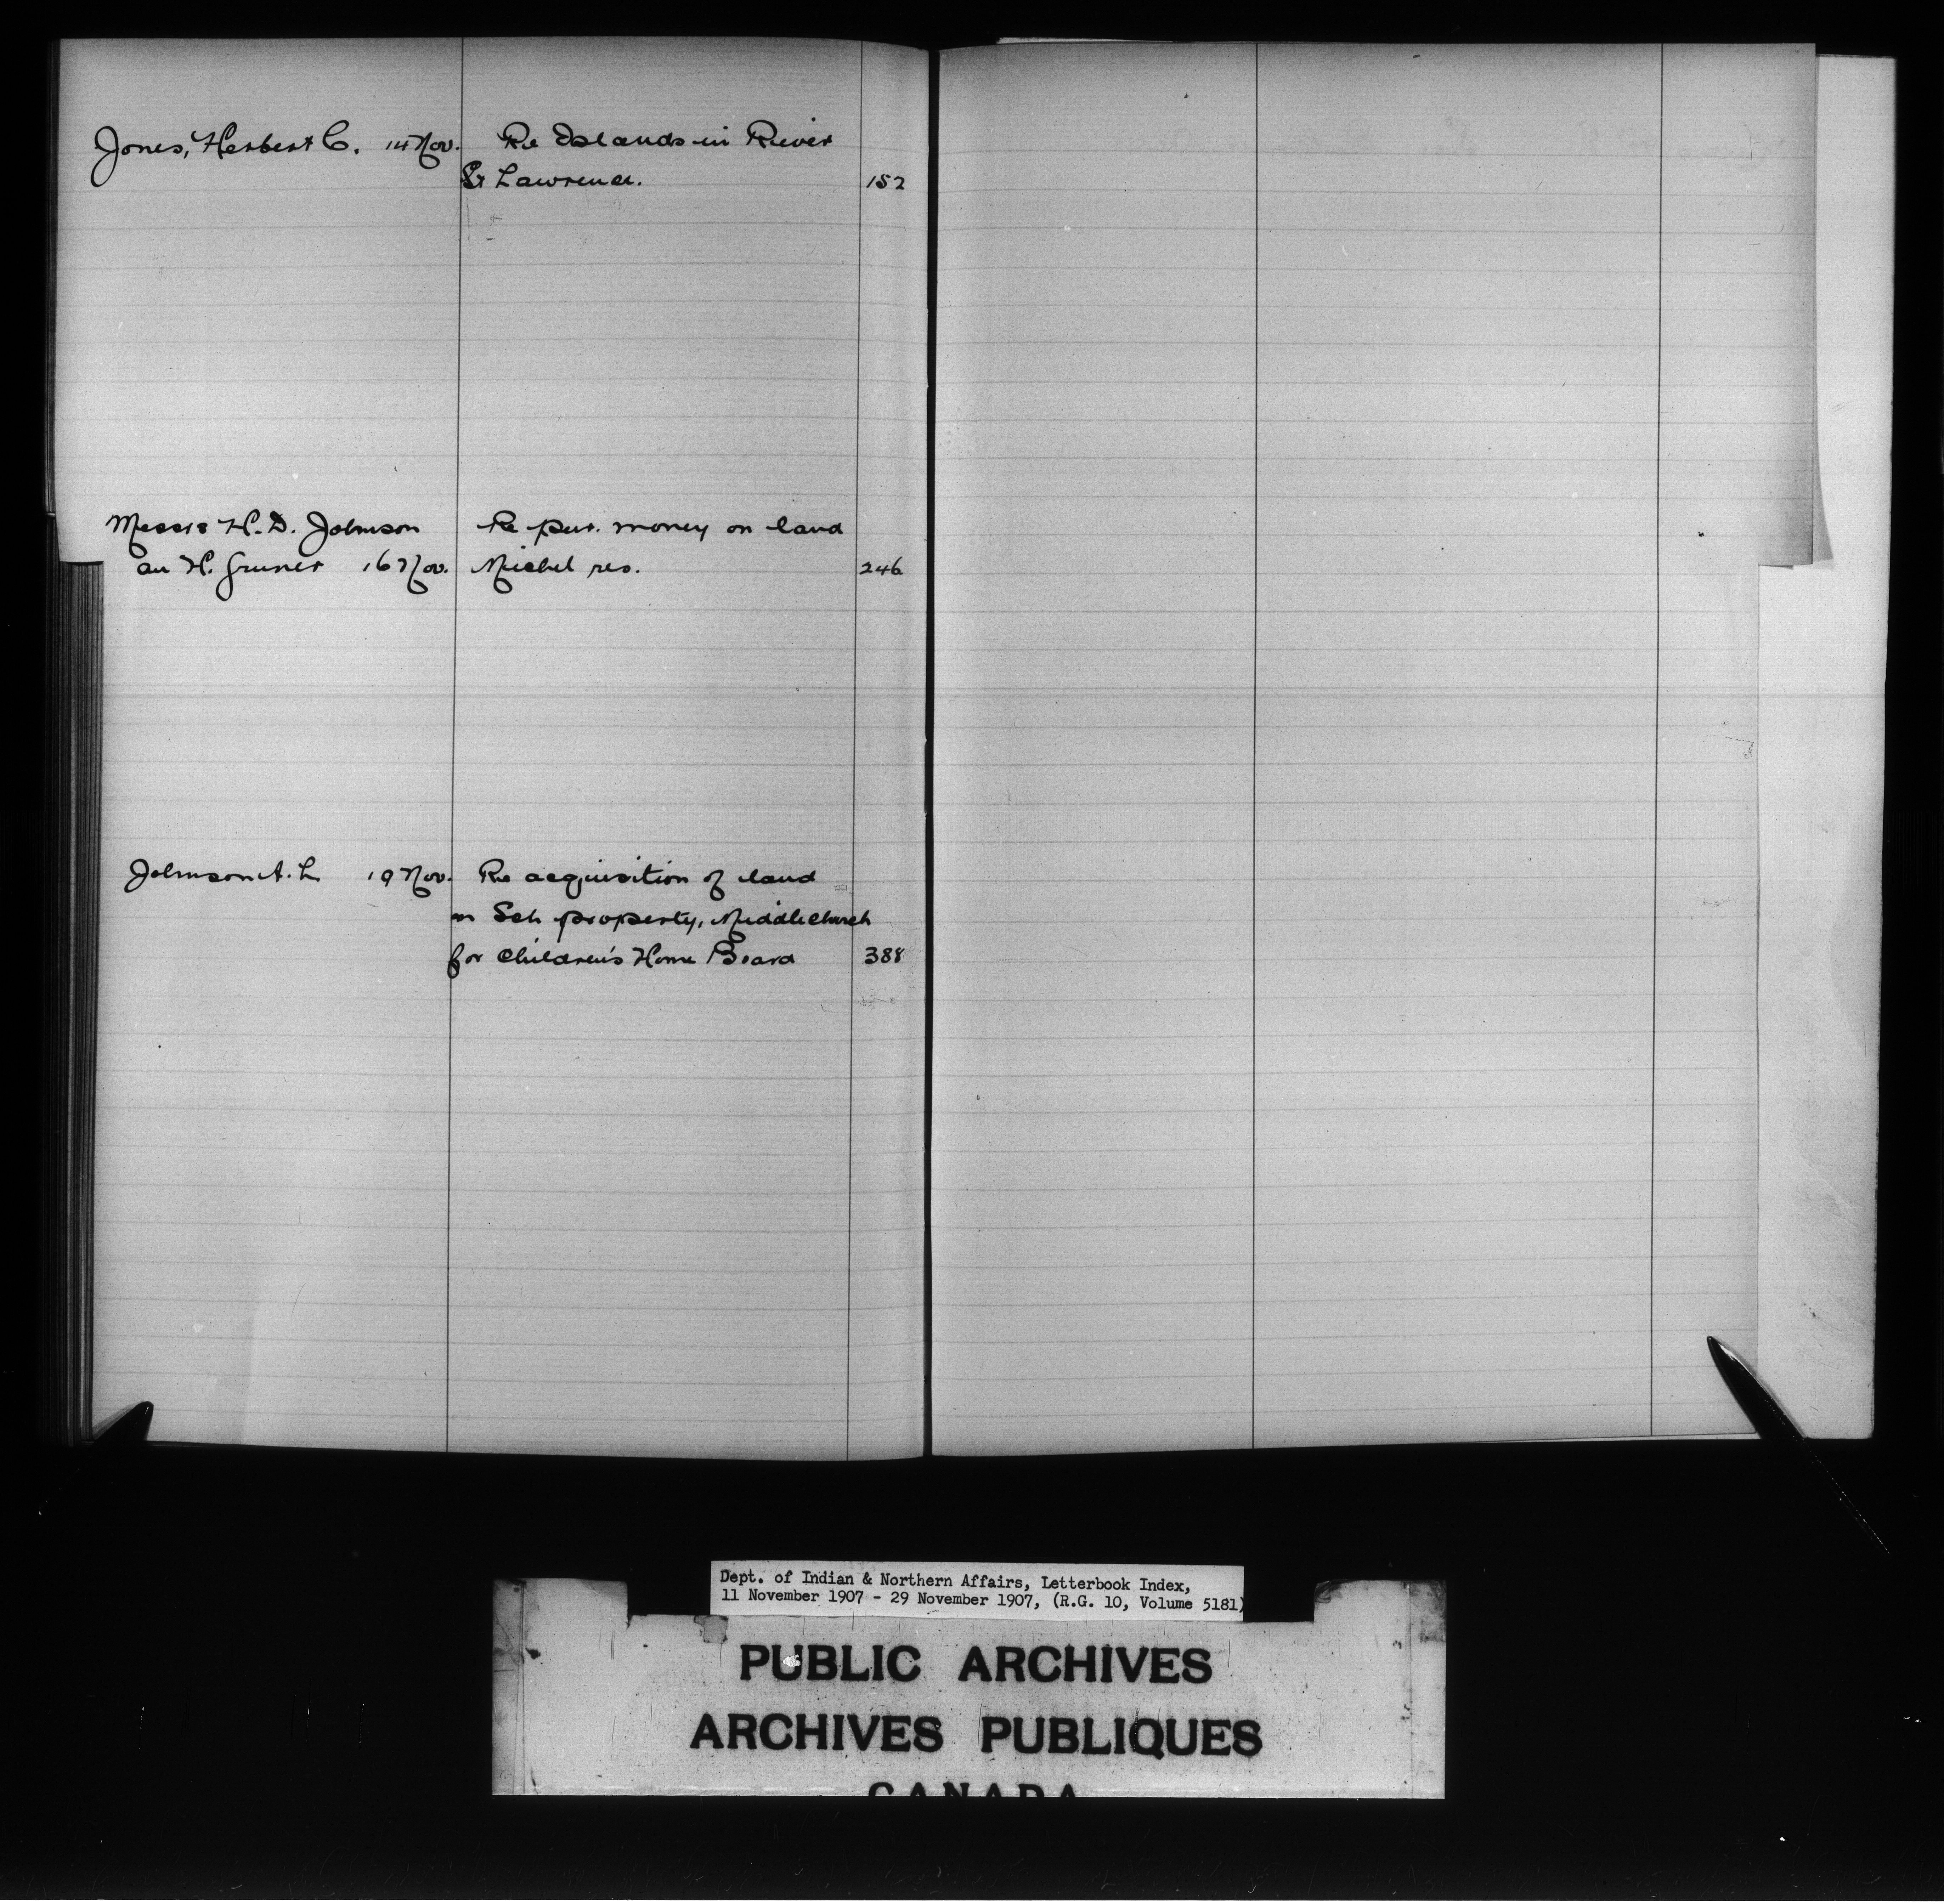 Jones, Herbert C. 14 Nov. Re Islands in River
St Lawrence. 152
Messrs H. D. Johnson Re pur. money on land
H. Gruner 16 Nov. Michel res. 246
Johnson A. L. 19 Nov. Re acquisition of land
on Sch property, Middlechurch
for Children's Home Board 388
Dept. of Indian & Northern Affairs, Letterbook Index,
11 November 1907 - 29 November 1907, (R.G. 10, Volume 5181)
PUBLIC ARCHIVES
ARCHIVES PUBLIQUES
CANADA